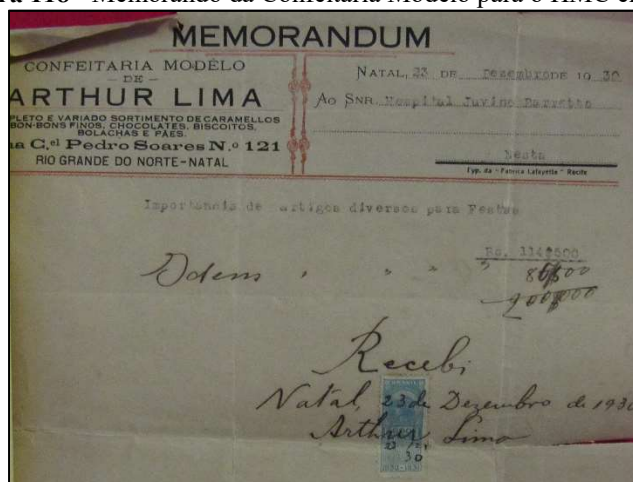 Memorando da Confeitaria Modelo para o HMC
MEMORANDUM
CONFEITARIA MODÉLO
— DE —
ARTHUR LIMA
PLETO E VARIADO SORTIMENTO DE CARAMELLOS
BON-BONS FINOS, CHOCOLATES, BISCOITOS,
BOLACHAS E PÃES.
a C.el Pedro Soares N.º 121
RIO GRANDE DO NORTE-NATAL
NATAL, 23 DE Dezembro DE 19 30
AO SNR. Hospital Juvino Barretto
Nesta
Typ. da "Fabrica Lafayette" Recife
Importancia de artigos diversos para Festas
Rs. 114$500
Idem " " " "
200$000
Recebi
Natal, 23 de Dezembro de 1930
Arthur Lima
30